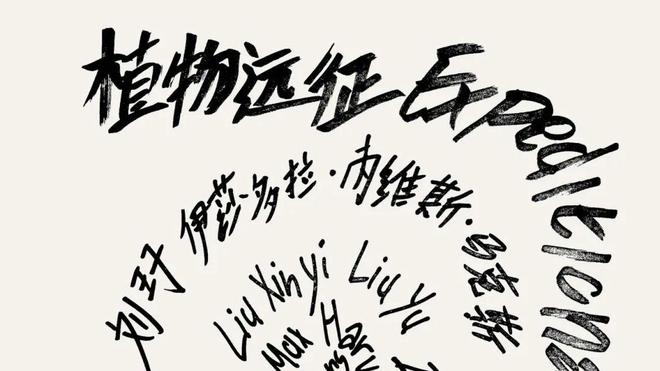 植物远征 Expeditions
刘玗
伊莎多拉·内维斯·马克斯
Liu Xinyi
Liu Yu
Max